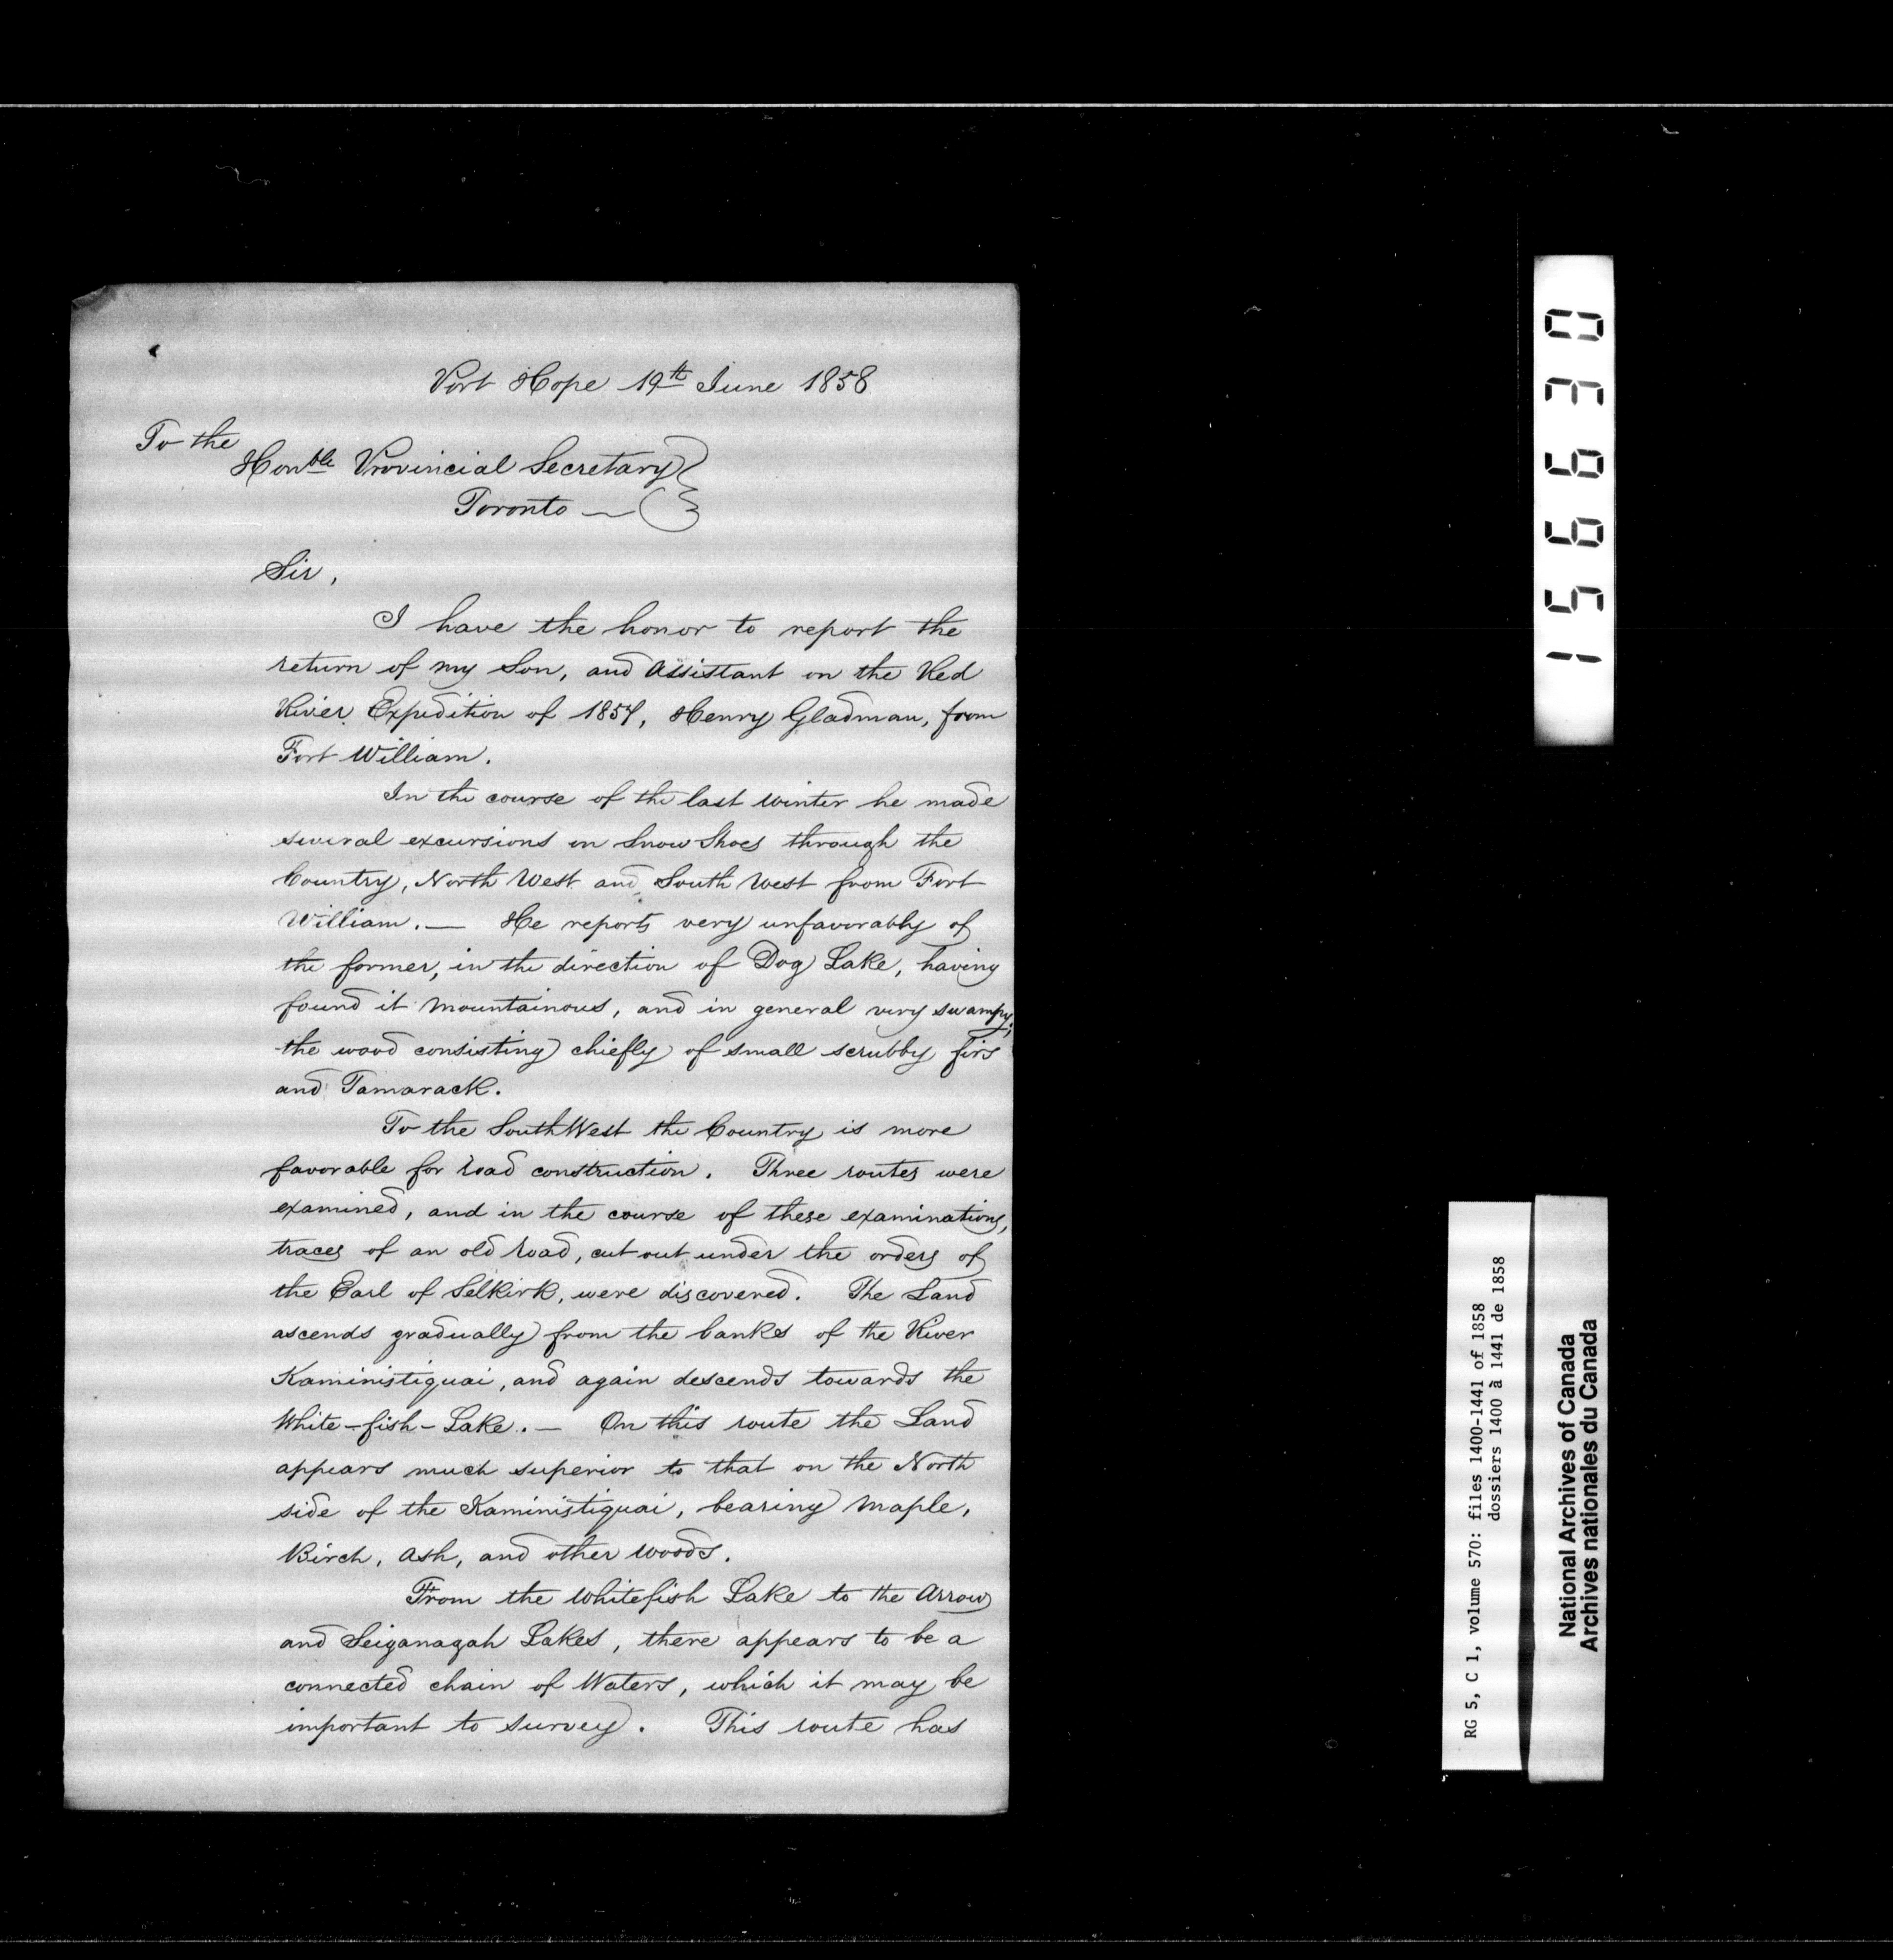 Port Hope 19th June 1858
To the
Honble Provincial Secretary
Toronto —
Sir,
I have the honor to report the
return of my Son, and Assistant on the Red
River Expedition of 1857, Henry Gladman, from
Fort William.
In the course of the last Winter he made
several excursions on Snow Shoes through the
Country, North West and South West from Fort
William. — He reports very unfavorably of
the former, in the direction of Dog Lake, having
found it Mountainous, and in general very swampy;
the wood consisting chiefly of small scrubby firs
and Tamarack.
To the South West the Country is more
favorable for Road construction. Three routes were
examined, and in the course of these examinations,
traces of an old Road, cut out under the orders of
the Earl of Selkirk, were discovered. The Land
ascends gradually from the banks of the River
Kaministiquai, and again descends towards the
White-fish-Lake. — On this route the Land
appears much superior to that on the North
side of the Kaministiquai, bearing Maple,
Birch, Ash, and other Woods.
From the Whitefish Lake to the Arrow
and Seiganagah Lakes, there appears to be a
connected chain of Waters, which it may be
important to survey. This route has
156630
RG 5, C 1, volume 570: files 1400-1441 of 1858
dossiers 1400 à 1441 de 1858
National Archives of Canada
Archives nationales du Canada